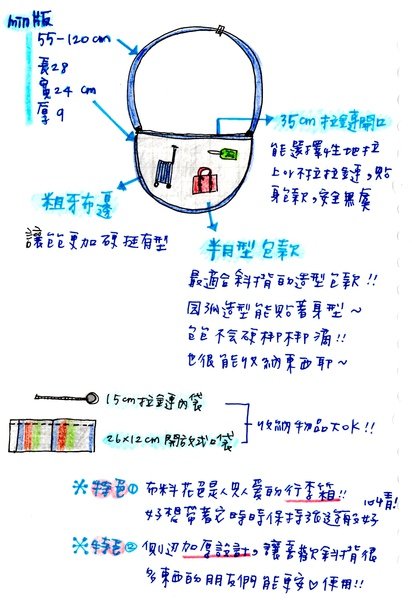 min版
55-120cm
長28
寬24 cm
厚9
35cm拉鍊開口
能選擇性地拉
上or不拉拉鍊,貼
身包款,安全無虞
粗牙布邊
讓包更加硬挺有型
半月型包款
最適合斜背的造型包款!!
因為造型能貼著身型~
包包不會硬梆梆滴!!
也很能收納東西耶~
15cm拉鍊內袋
26x12cm開放式口袋
收納物品大OK!!
※特色① 布料花色是人見人愛的行李箱!!
好想帶著它時時保持旅遊的好心情!
※特色② 側边加厚設計,讓喜歡斜背很
多東西的朋友們能更安心使用!!